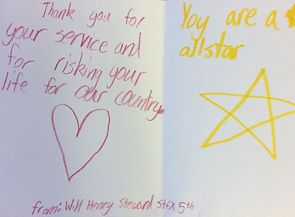 Thank you for
your service and
for risking your
life for our country
from: Will Henry Steward StFX 5th
You are a
allstar